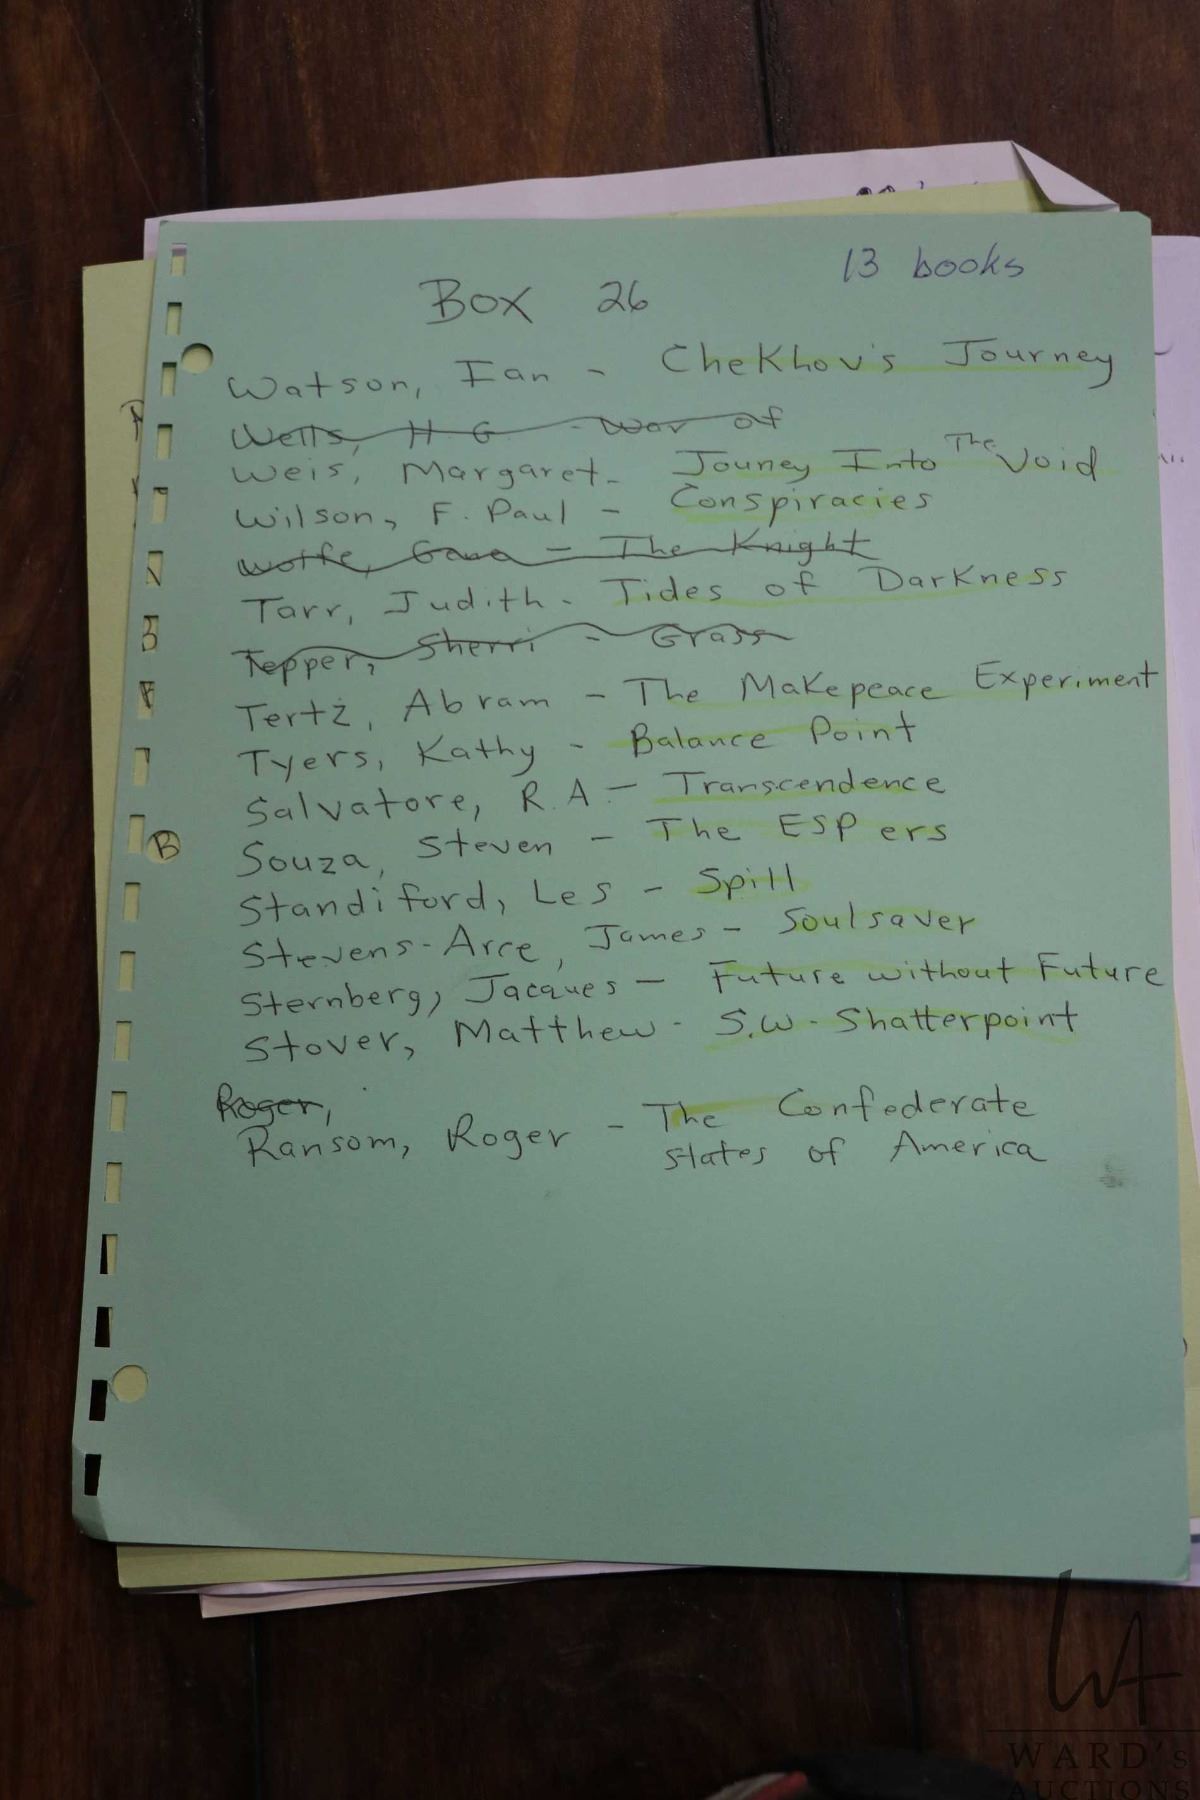 13 books
Box 26
Watson, Ian - Chekhov's Journey
Wells, H G - War of
Weis, Margaret - Jouney Into The Void
Wilson, F. Paul - Conspiracies
Wolfe, Gene - The Knight
Tarr, Judith - Tides of Darkness
Tepper, Sherri - Grass
Tertz, Abram - The Makepeace Experiment
Tyers, Kathy - Balance Point
Salvatore, R.A - Transcendence
B
Souza, Steven - The ESPers
Standiford, Les - Spill
Stevens-Arce, James - Soulsaver
Sternberg, Jacques - Future without Future
Stover, Matthew - S.W - Shatterpoint
Roger,
Ransom, Roger - The Confederate
states of America
WA
WARD's
AUCTIONS